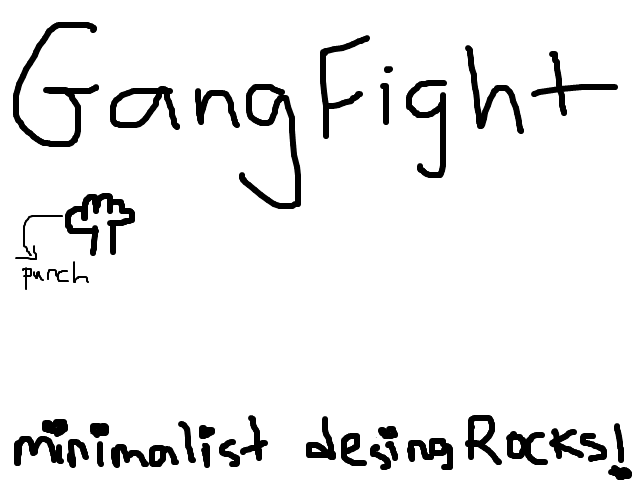 GangFight
punch
minimalist desing Rocks!